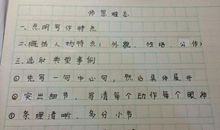 一.点明写作特点
二.概括人物特点(外貌、性格、
三.选取典型事例
①先写一句中心句,然后具体展开
②突出细节,写清每个动作每个眼神
③条理清晰,